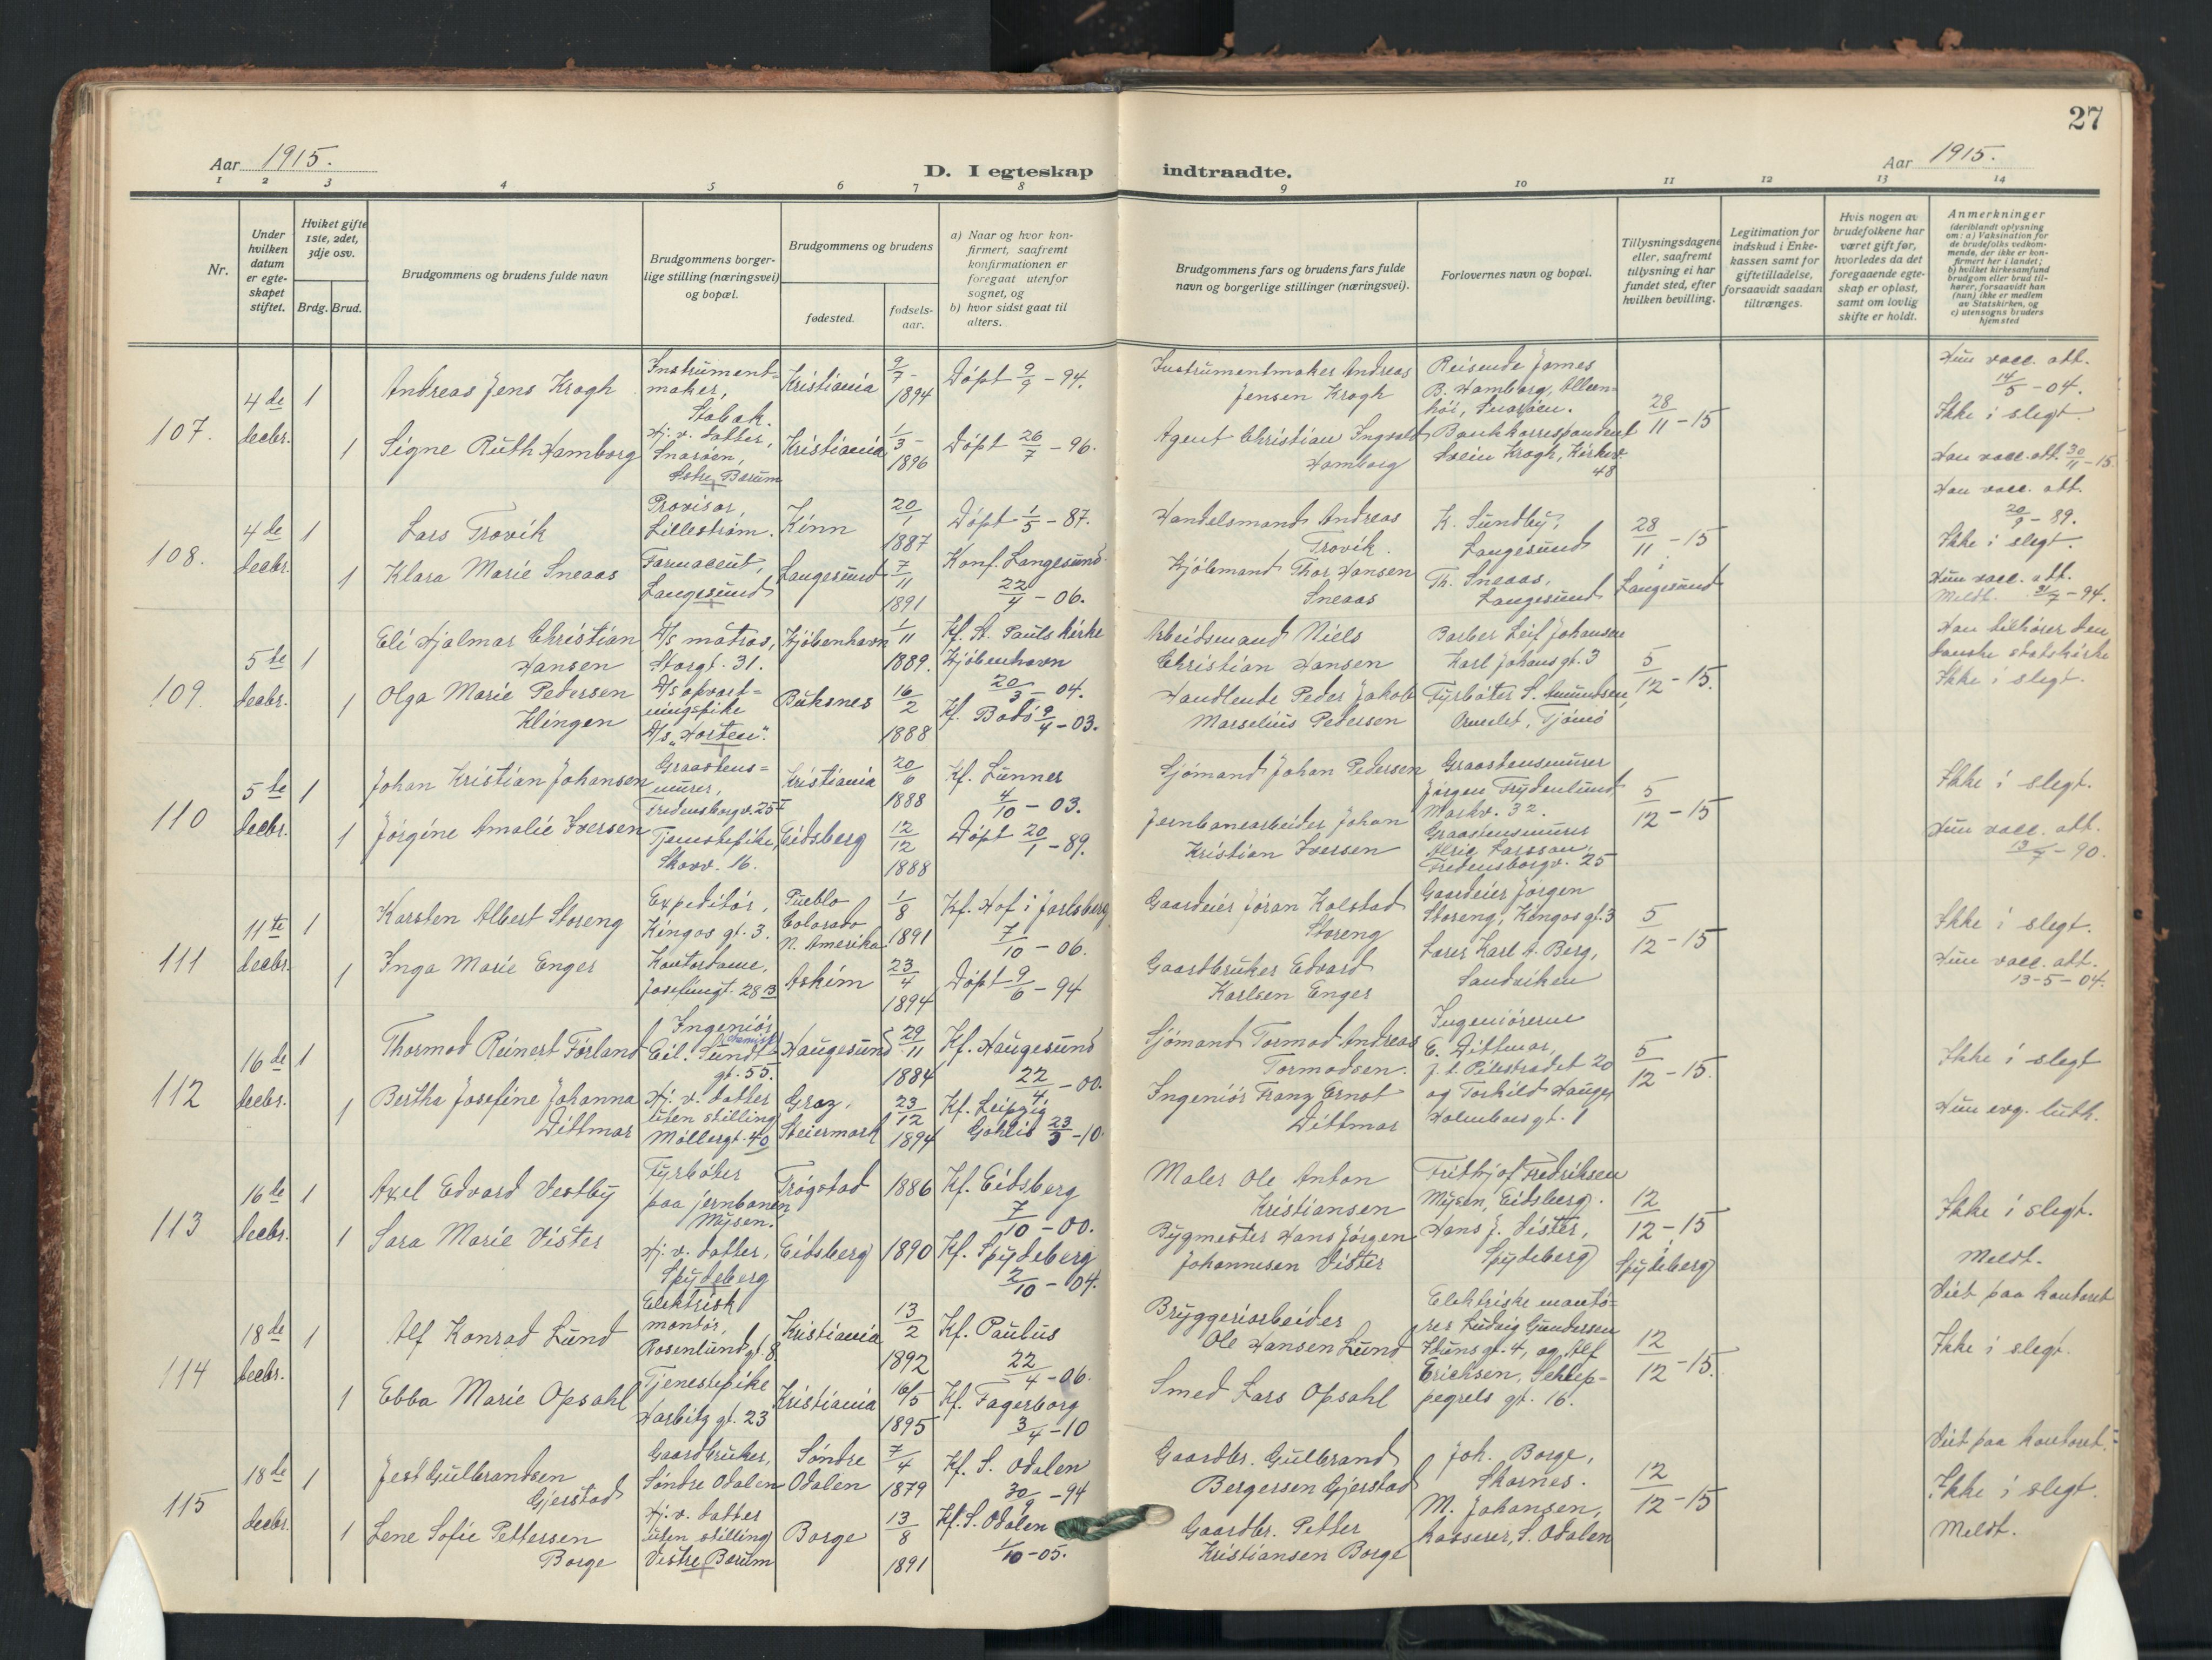 27
Aar 1915.
D. I egteskap indtraadte.
Aar 1915.
1 2 3 4 5 6 7 8 9 10 11 12 13 14
Nr.
Under hvilken datum er egteskapet stiftet.
Hviket gifte 1ste, 2det, 3dje osv.
Brdg. Brud.
Brudgommens og brudens fulde navn
Brudgommens borgerlige stilling (næringsvei) og bopæl.
Brudgommens og brudens
fødested.
fødselsaar.
a) Naar og hvor konfirmert, saafremt konfirmationen er foregaat utenfor sognet, og
b) hvor sidst gaat til alters.
Brudgommens fars og brudens fars fulde navn og borgerlige stillinger (næringsvei).
Forlovernes navn og bopæl.
Tillysningsdagene eller, saafremt tillysning ei har fundet sted, efter hvilken bevilling.
Legitimation for indskud i Enkekassen samt for giftetilladelse, forsaavidt saadan tiltrænges.
Hvis nogen av brudefolkene har været gift før, hvorledes da det foregaaende egteskap er opløst, samt om lovlig skifte er holdt.
Anmerkninger
(deriblandt oplysning om: a) Vaksination for de brudefolks vedkommende, der ikke er konfirmert her i landet; b) hvilket kirkesamfund brudgom eller brud tilhører, forsaavidt han (hun) ikke er medlem av Statskirken, og c) utensogns bruders hjemsted
107. 4de decbr. 1 Andreas Jens Krogh Instrumentmaker, Stabæk. Kristiania 9/7 - 1894 Döpt 9/9 - 94. Instrumentmaker Andreas Jensen Krogh Reisende James B. Hamborg, Snaröen. 28/11 - 15 Hun vacc. att. 14/5 - 04. Ikke i slegt.
1 Signe Ruth Hamborg Hj. v. datter, Snaröen, Östre Bærum Kristiania 1/3 - 1896 Döpt 26/7 - 96. Agent Christian Ingvald Hamborg Bankkorrespondent Svein Krogh, Kirkev. 48 Han vacc. att. 30/11 - 15.
108. 4de decbr. 1 Lars Trovik Provisor, Lilleström. Kinn 20/1 1887 Döpt 1/5 - 87. Handelsmand Andreas Trovik. K. Sundby, Langesund 28/11 - 15 Han vacc. att. 20/9 - 89. Ikke i slegt.
1 Klara Marie Sneaas Farmaceut, Langesund Langesund 7/11 1891 Konf. Langesund 22/4 - 06. Kjöbmand Thor Hansen Sneaas Th. Sneaas, Langesund Langesund Hun vacc. att. 94. Meldt.
109. 5te decbr. 1 Eli Hjalmar Christian Hansen D/s matros, Storgt. 31. Kjöbenhavn 1/11 1889. Kf. St. Pauls kirke Kjöbenhavn 20/3 - 04. Arbeidsmand Niels Christian Hansen Barber Leif Johansen Karl Johans gt. 3 5/12 - 15. Han tilhörer den danske statskirke Ikke i slegt.
1 Olga Marie Pedersen Klingen D/s opvartningspike D/s "Horten". Buksnes 16/2 1888 Kf. Bodö 9/4 - 03. Handlende Peder Jakob Marselius Pedersen Fyrböter S. Amundsen, Ormelet, Tjömö
110 5te decbr. 1 Johan Kristian Johansen Graastensmurer, Fredensborgv. 25 Kristiania 20/6 1888 Kf. Lunner 4/10 - 03. Sjömand Johan Pedersen Graastensmurer Jörgen Frydenlund Markv. 32. 5/12 - 15 Ikke i slegt.
1 Jörgine Amalie Iversen Tjenestepike, Skovv. 16. Eidsberg 12/12 1888 Döpt 20/1 - 89. Jernbanearbeider Johan Kristian Iversen Graastensmurer Alric Larsson, Fredensborgv. 25 Hun vacc. att. 13/7 - 90.
111 11te decbr. 1 Karsten Albert Storeng Expeditör, Kingos gt. 3. Pueblo Colorado N. Amerika 1/8 1891 Kf. Hof i Jarlsberg 7/10 - 06. Gaardeier Jöran Kolstad Storeng Gaardeier Jörgen Storeng, Kingos gt. 3 5/12 - 15 Ikke i slegt.
1 Inga Marie Enger Kontordame, Josefinegt. 28 Askim 23/4 1894 Döpt 9/6 - 94 Gaardbruker Edvard Karlsen Enger Lærer Karl A. Berg, Sandviken Hun vacc. att. 13-5-04.
112 16de decbr. 1 Thormod Reinert Förland Ingeniör (kemisk) Eil. Sundts gt. 55. Haugesund 29/11 1884 Kf. Haugesund 22/4 - 00. Sjömand Tormod Andreas Tormodsen. Ingeniörerne E. Dittmar, z. t. Pilestrædet 20 5/12 - 15. Ikke i slegt
1 Bertha Josefine Johanna Dittmar Hj. v. datter uten stilling Möllergt. 40 Graz, Steiermark 23/12 1894 Kf. Leipzig Gohlis 23/3 - 10. Ingeniör Franz Ernst Dittmar og Torkild Hauge, Holmboes gt. 1 Hun evg. luth.
113 16de decbr. 1 Axel Edvard Vestby Fyrböter paa jernbanen Mysen. Trögstad 1886 Kf. Eidsberg 7/10 - 00. Maler Ole Anton Kristiansen Frithjof Fredriksen Mysen, Eidsberg. 12/12 - 15 Ikke i slegt.
1 Sara Marie Vister Hj. v. datter, Spydeberg Eidsberg 1890 Kf. Spydeberg 2/10 - 04. Bygmester Hans Jörgen Johannesen Vister Hans J. Vister, Spydeberg Spydeberg Meldt.
114 18de decbr. 1 Alf Konrad Lund Elektrisk montör, Rosenlundgt. 8 Kristiania 13/2 1892 Kf. Paulus 22/4 - 06. Bryggeriarbeider Ole Hansen Lund Elektriske montörer Ludvig Gundersen Iduns gt. 4, og Alf 12/12 - 15. Viet paa kontoret Ikke i slegt.
1 Ebba Marie Opsahl Tjenestepike Harbitz gt. 23 Kristiania 16/5 1895 Kf. Fagerborg 3/4 - 10 Smed Lars Opsahl Erichsen, Schleppegrels gt. 16.
115 18de decbr. 1 Jest Gulbrandsen Gjerstad Gaardbruker, Söndre Odalen Söndre Odalen 7/4 1879 Kf. S. Odalen 30/9 - 94 Gaardbr. Gulbrand Bergersen Gjerstad Joh. Borge, Skarnes. 12/12 - 15 Viet paa kontoret. Ikke i slegt.
1 Lene Sofie Pettersen Borge Hj. v. datter uten stilling Vestre Bærum Borge 13/8 1891 Kf. S. Odalen 1/10 - 05. Gaardbr. Petter Kristiansen Borge M. Johansen, kasserer, S. Odalen Meldt.